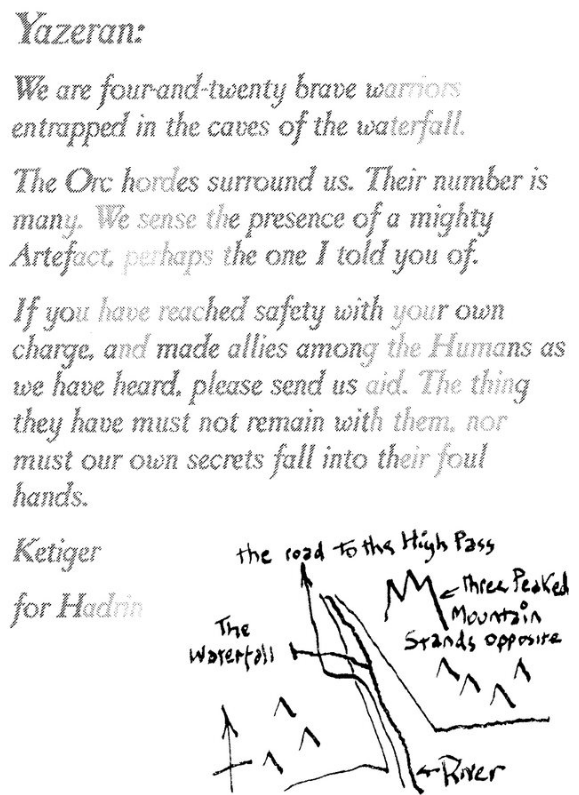 Yazeran:
We are four-and-twenty brave warriors
entrapped in the caves of the waterfall.
The Orc hordes surround us. Their number is
many. We sense the presence of a mighty
Artefact, perhaps the one I told you of.
If you have reached safety with your own
charge, and made allies among the Humans as
we have heard, please send us aid. The thing
they have must not remain with them, nor
must our own secrets fall into their foul
hands.
Ketiger
for Hadrin
the road to the High Pass
Three Peaked
Mountain
Stands opposite
The
Waterfall
River